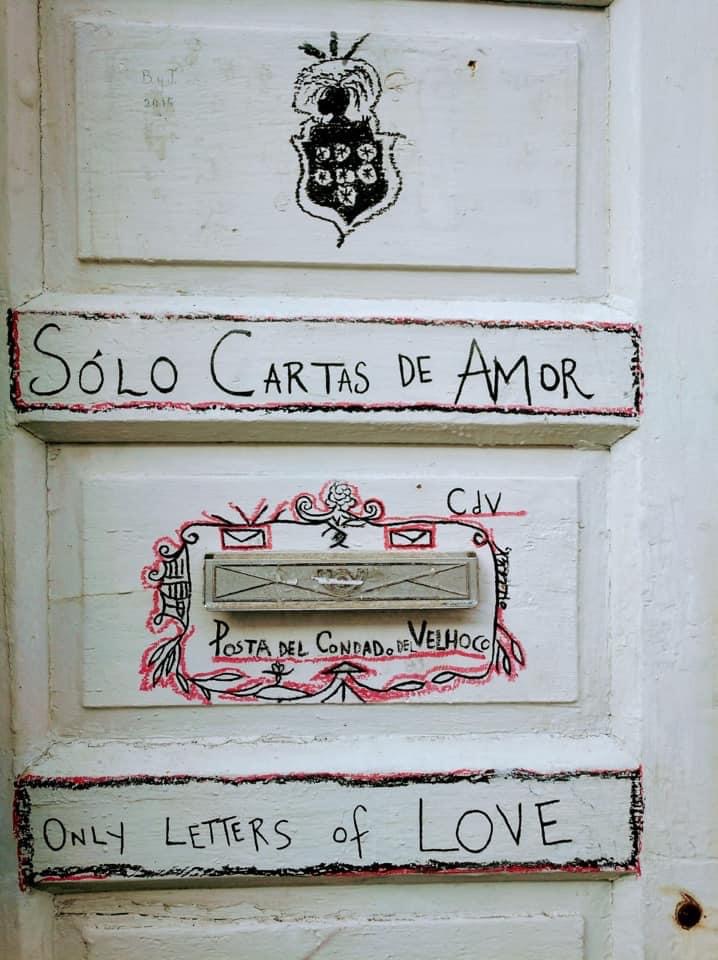 By J.
2015
SÓLO CARTAS DE AMOR
CdV
POSTA DEL CONDADO DEL VELHOCO
ONLY LETTERS of LOVE